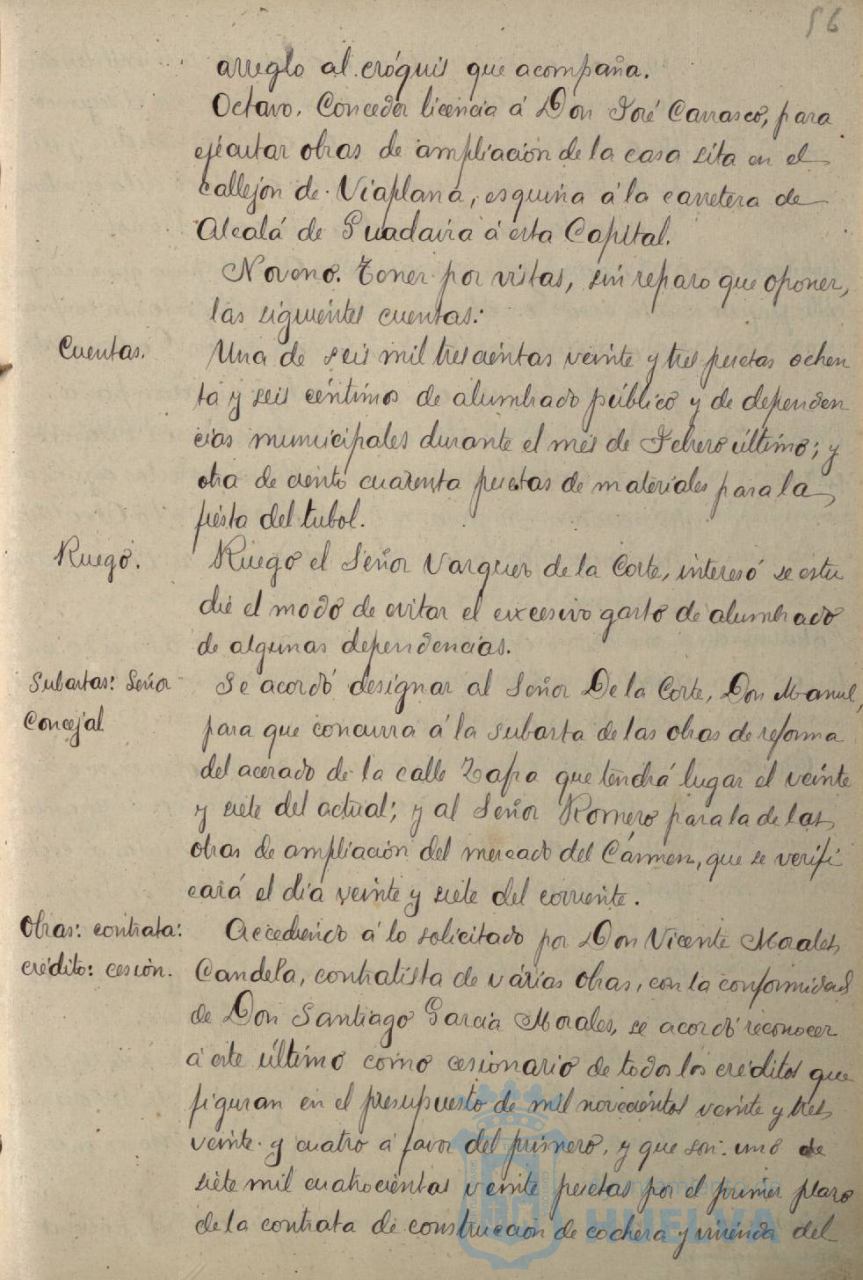 56
arreglo al cróquis que acompaña.
Octavo. Conceder licencia á Don José Carrasco, para
ejecutar obras de ampliación de la casa sita en el
callejon de Viaplana, esquina á la carretera de
Alcalá de Guadaira á esta Capital.
Noveno. Tener por vistas, sin reparo que oponer,
las siguientes cuentas:
Cuentas. Una de seis mil trescientas veinte y tres pesetas ochen
ta y seis céntimos de alumbrado público y de dependen
cias municipales durante el mes de Febrero último; y
otra de ciento cuarenta pesetas de materiales para la
fiesta del tubol.
Ruego. Ruego el Señor Vazquez de la Corte, interesó se estu
die el modo de evitar el excesivo gasto de alumbrado
de algunas dependencias.
Subastas: Señor Se acordó designar al Señor De la Corte, Don Manuel,
Concejal para que concurra á la subasta de las obras de reforma
del acerado de la calle Zafra que tendrá lugar el veinte
y siete del actual; y al Señor Romero para la de las
obras de ampliación del mercado del Cármen, que se verifi
cará el dia veinte y siete del corriente.
Obras: contrata: Accediendo á lo solicitado por Don Vicente Morales
crédito: cesión. Candela, contratista de várias obras, con la conformidad
de Don Santiago García Morales, se acordó reconocer
á este último como cesionario de todos los créditos que
figuran en el presupuesto de mil novecientos veinte y tres
veinte y cuatro á favor del primero, y que son: uno de
siete mil cuatrocientas veinte pesetas por el primer plazo
de la contrata de construcción de cochera y vivienda del
HUELVA